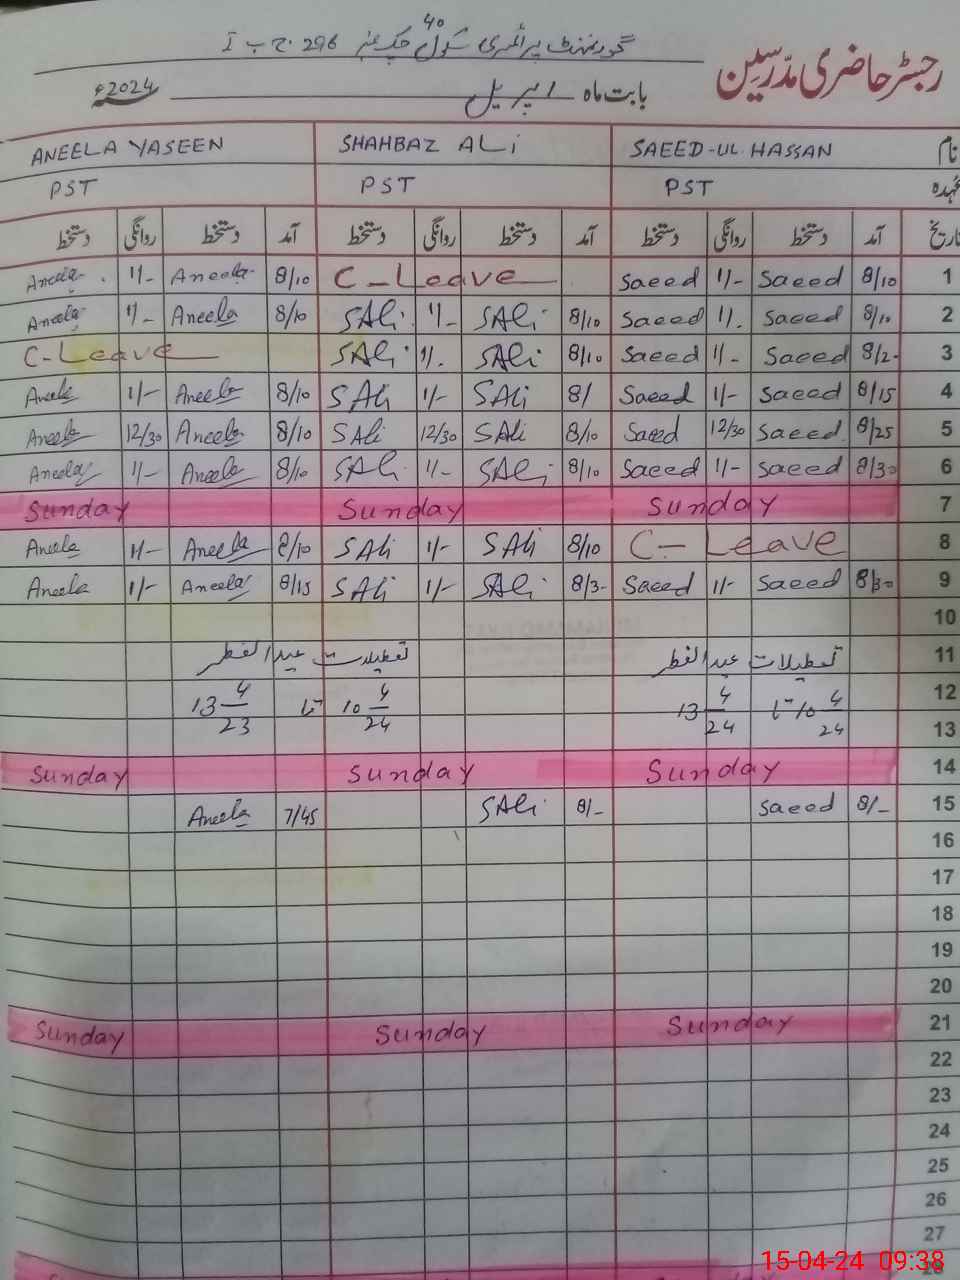 40
گورنمنٹ پرائمری سکول چک نمبر 296 ج ب I
رجسٹر حاضری مدرسین
بابت ماہ اپریل 2024ء
نام SAEED-UL HASSAN SHAHBAZ ALi ANEELA YASEEN
عہدہ PST PST PST
تاریخ آمد دستخط روانگی دستخط آمد دستخط روانگی دستخط آمد دستخط روانگی دستخط
1 8/10 Saeed 1/- Saeed C-Leave 8/10 Aneela 1/- Aneela
2 8/10 Saeed 1/. Saeed 8/10 SAli 1/- SAli 8/10 Aneela 1/- Aneela
3 8/2- Saeed 1/- Saeed 8/10 SAli 1/. SAli C-Leave
4 8/15 Saeed 1/- Saeed 8/ SAli 1/- SAli 8/10 Aneela 1/- Aneela
5 8/25 Saeed 12/30 Saeed 8/10 SAli 12/30 SAli 8/10 Aneela 12/30 Aneela
6 8/30 Saeed 1/- Saeed 8/10 SAli 1/- SAli 8/10 Aneela 1/- Aneela
7 Sunday Sunday Sunday
8 C-Leave 8/10 SAli 1/- SAli 8/10 Aneela 1/- Aneela
9 8/30 Saeed 1/- Saeed 8/3- SAli 1/- SAli 8/15 Aneela 1/- Aneela
10
11 تعطیلات عید الفطر تعطیلات عید الفطر
12 10 4/24 تا 13 4/24 10 4/24 تا 13 4/23
13
14 Sunday Sunday Sunday
15 8/- Saeed 8/- SAli 7/45 Aneela
16
17
18
19
20
21 Sunday Sunday Sunday
22
23
24
25
26
27
28
15-04-24 09:38